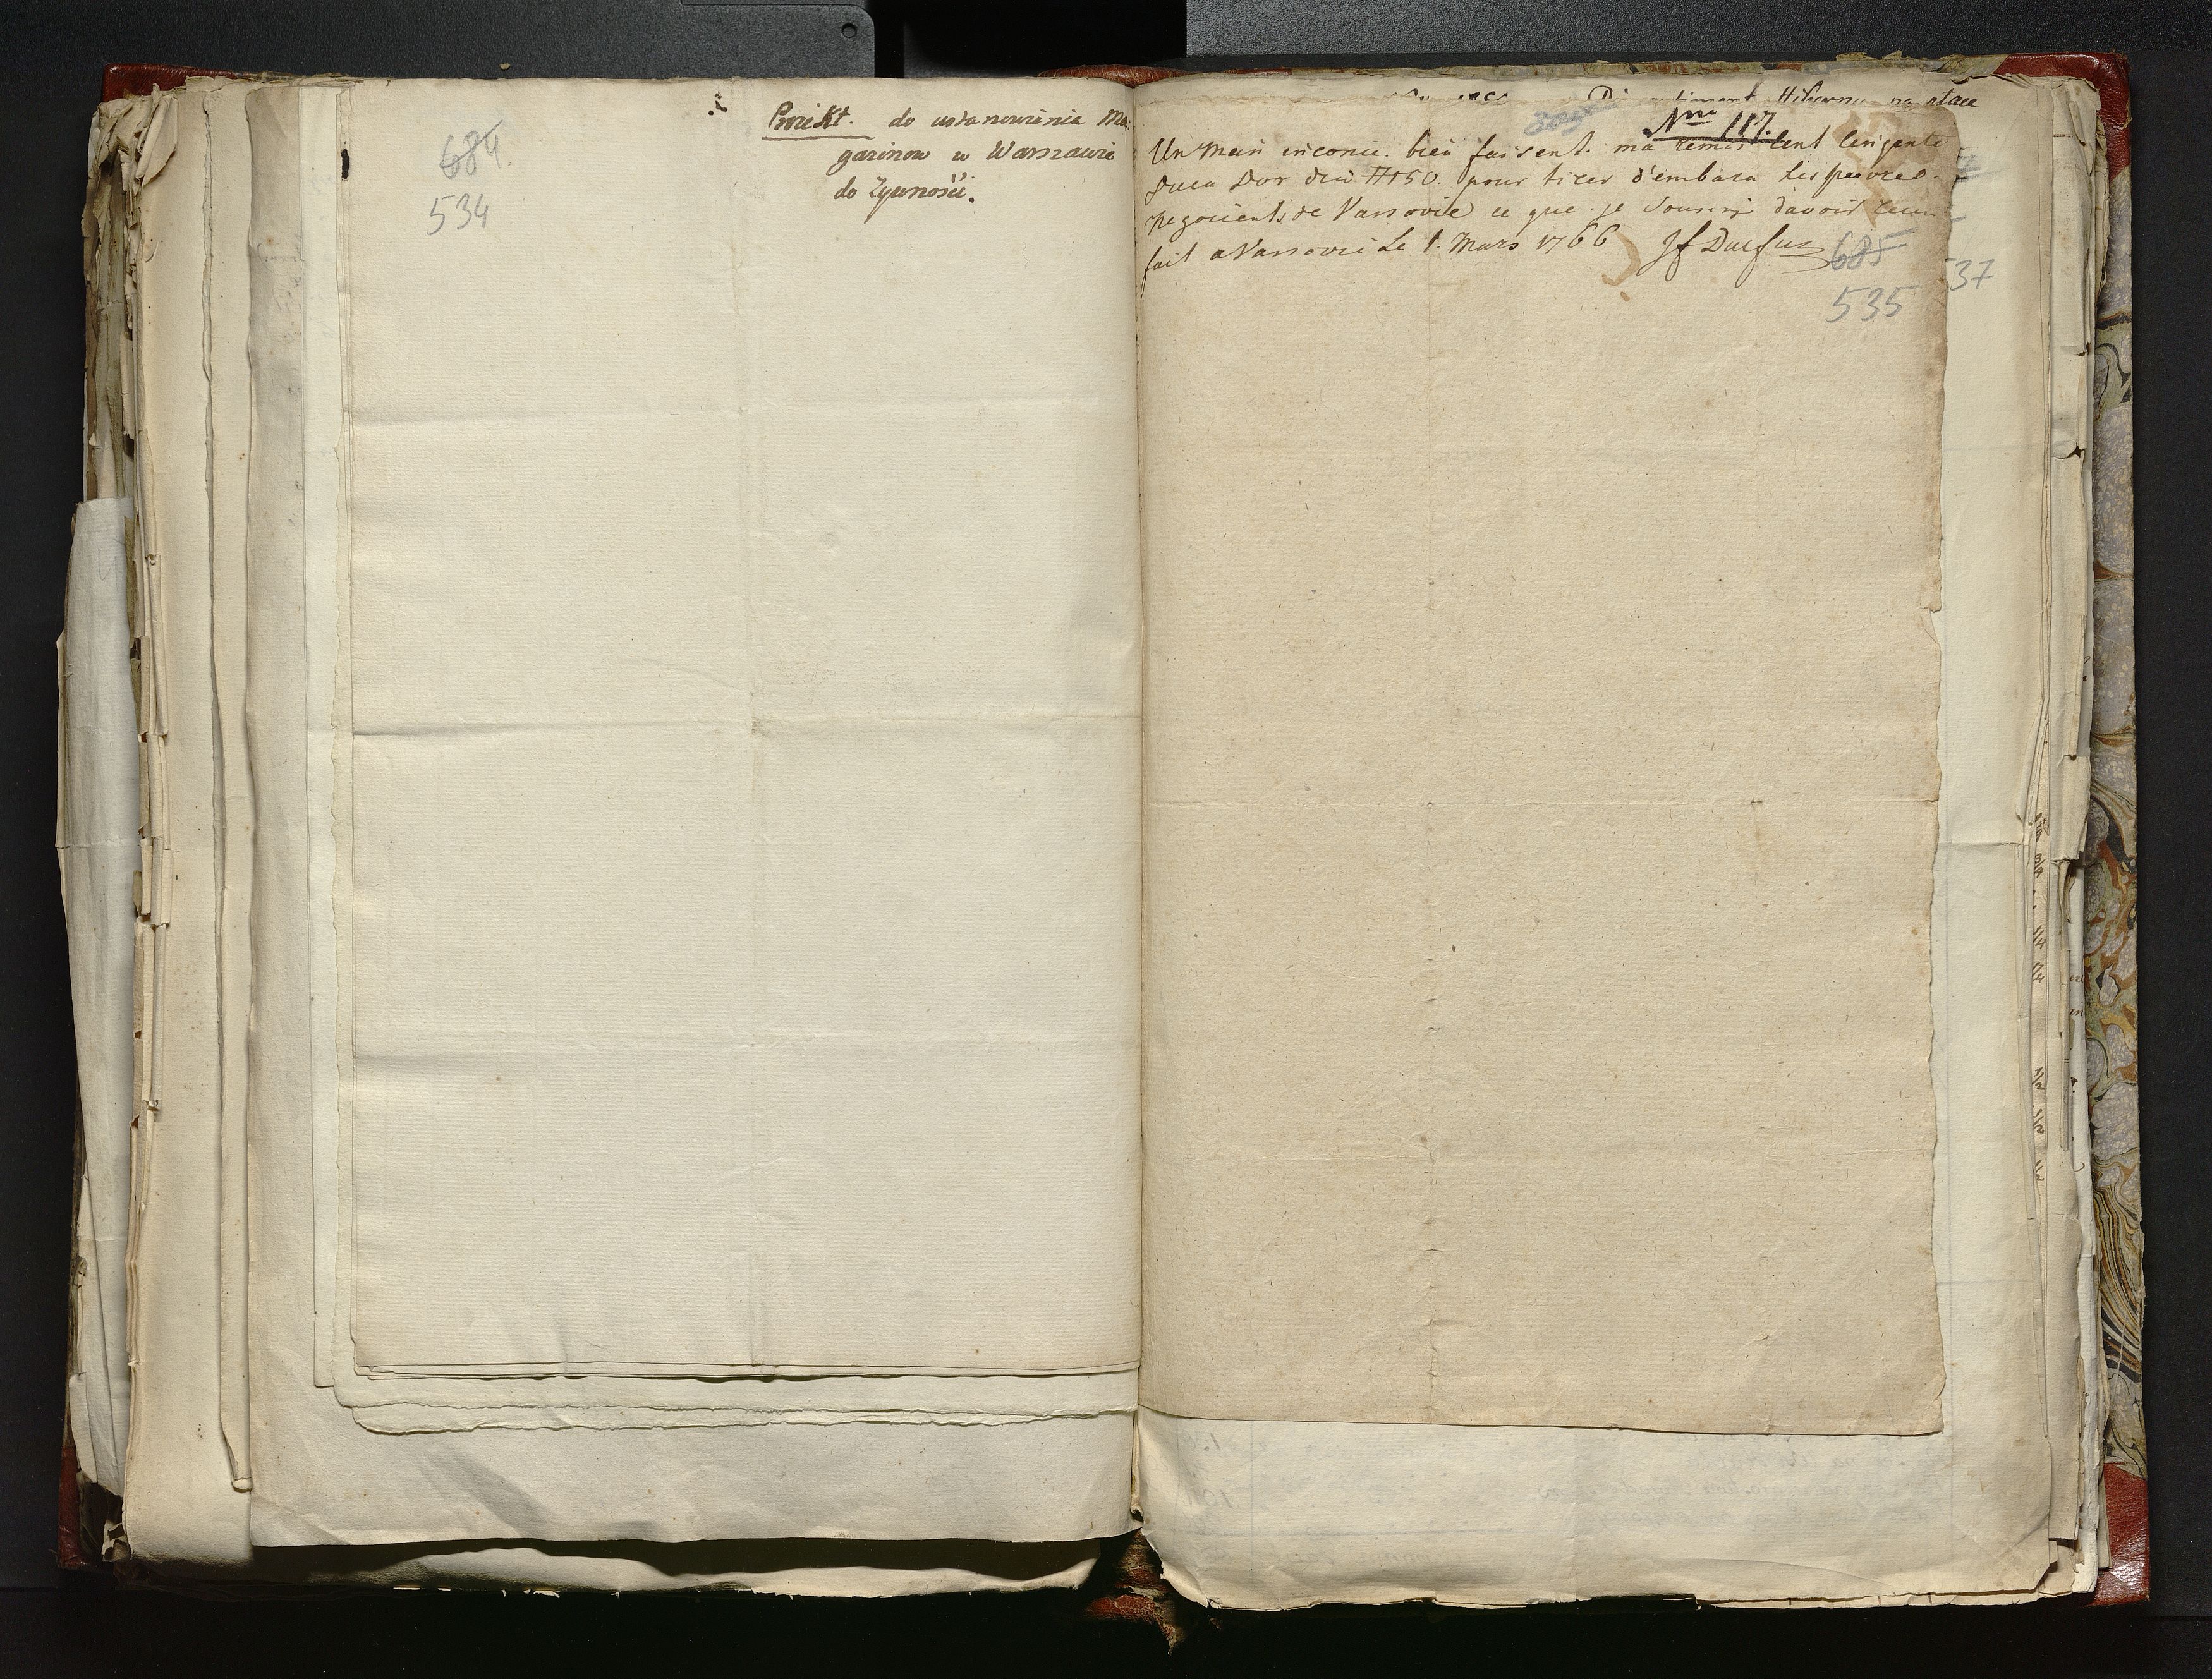 684
534
Proiekt do ustanowienia Ma
gazinow w Warszawie
do Zywnośći.
Nro 117.
Un Mein inconu. bien faisent. ma remis Cent Cinqente
Duca Dor diu #150. pour tirer d'embara les peuvres.
negocients de Varsovie ce que je Sousigni davoir recu
fait a Varsovie Le 1. Mars 1766
685
535
37